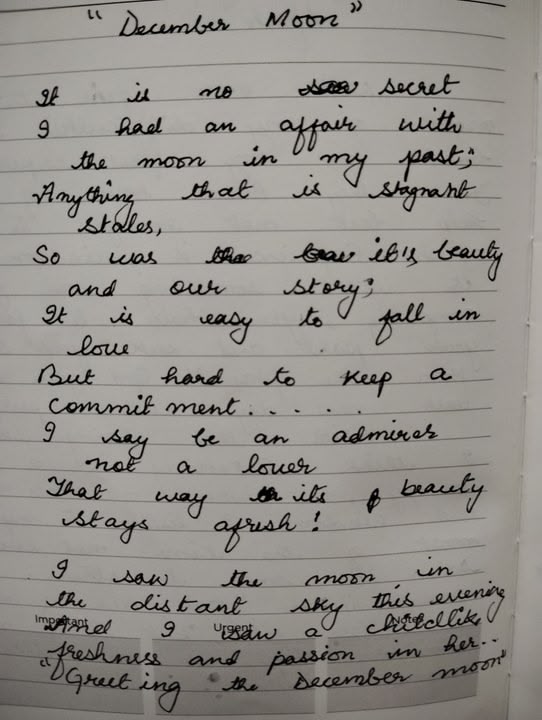 "December Moon"
It is no secret
I had an affair with
the moon in my past;
Anything that is stagnant
stales,
So was it's beauty
and our story;
It is easy to fall in
love
But hard to keep a
commitment.....
I say be an admirer
not a lover
That way its beauty
stays afresh!
I saw the moon in
the distant sky this evening
Important Urgent Note
And I saw a childlike
freshness and passion in her..
"Greeting the December moon"